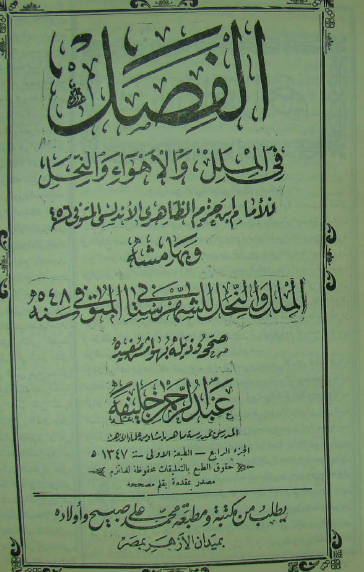 الفصل
في الملل والاهواء والنحل
للأمام ابن حزم الظاهرى الأندلسى المتوفى ٤٥٦
وبهامشه
الملل والنحل للشهرستانى المتوفى سنة ٥٤٨
صححه وذيله بهوامش مفيدة
عبد الرحمن خليفة
المدرس بمدرسة ماهر باشا
الجزء الرابع - الطبعة الاولى سنة ١٣٤٧ ه
حقوق الطبع بالتعليقات محفوظة لملتزم
مصدر بمقدمة بقلم مصححه
يطلب من مكتبة ومطبعة محمد على صبيح وأولاده
بميدان الأزهر بمصر